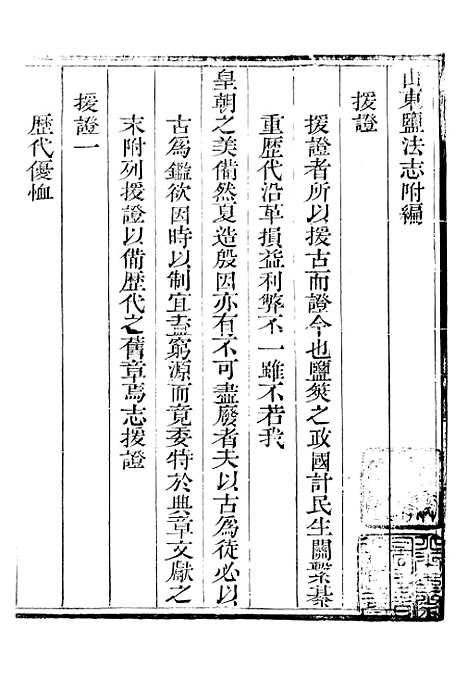 山東鹽法志附編
援證
援證者所以援古而證今也鹽筴之政國計民生關繫綦
重歷代沿革損益利弊不一雖不若我
皇朝之美備然夏造殷因亦有不可盡廢者夫以古爲徒必以
古爲鑑欲因時以制宜盍窮源而竟委特於典章文獻之
末附列援證以備歷代之舊章焉志援證
援證一
歷代優恤